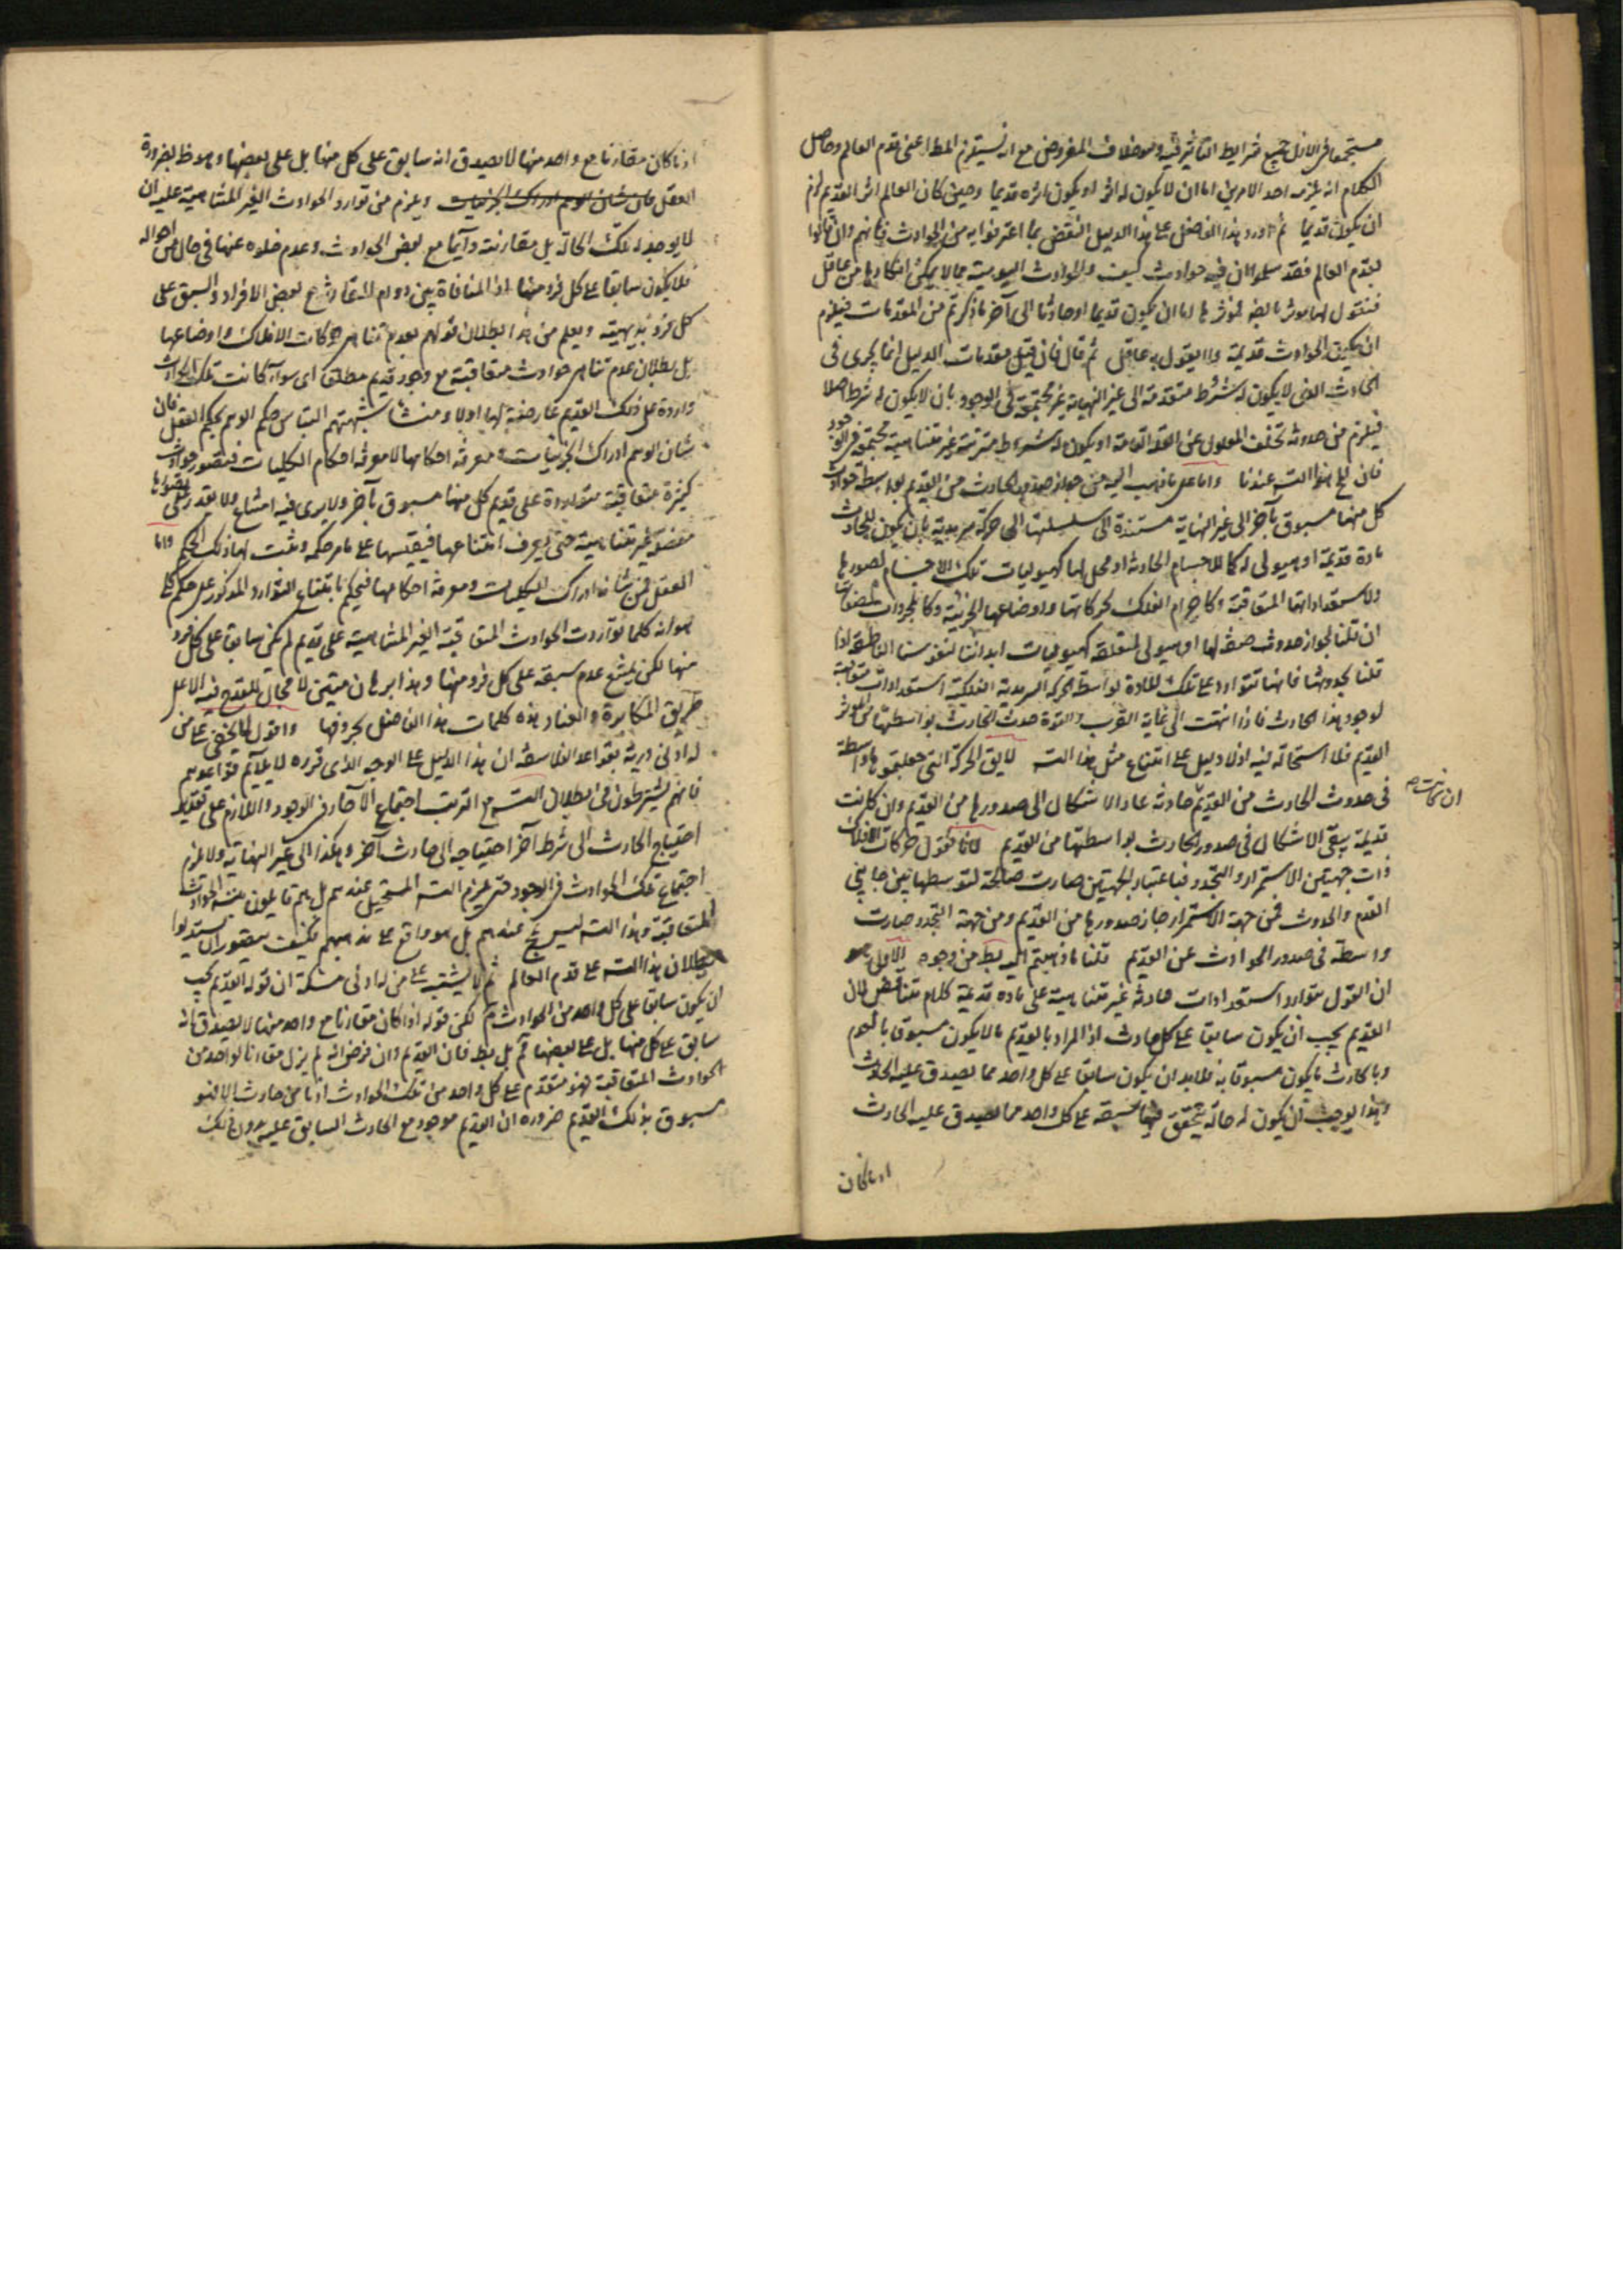 مستجمعا في الازل جميع شرايط التاثير فيه وهو خلاف المفروض مع انه يستلزم المط اعنى قدم العالم وحاصل
الكلام انه يلزمه احد الامرين اما ان لا يكون له اثر او يكون اثره قديما وحين كان العالم اثر القديم لزم
ان يكون قديما ثم اورد هذا الفاضل على هذا الدليل النقض بما اعترفوا به من الحوادث فانهم وان قالوا
بقدم العالم فقد سلموا ان فيه حوادث كيف والحوادث اليومية مما لا يمكن انكارها من عاقل
فنقول لها مؤثر بالضرورة فمؤثرها اما ان يكون قديما او حادثا الى آخر ما ذكرتم من المقدمات فيلزم
ان يكون الحوادث قديمة ولا يقول به عاقل ثم قال فان قيل مقدمات الدليل انما يجرى فى
الحادث الذى لا يكون له شروط متقدمة الى غير النهاية غير مجتمعة فى الوجود بان لا يكون له شرط اصلا
فيلزم من حدوثه تخلف المعلول عن العلة التامة او يكون له شرايط مترتبة غير متناهية مجتمعة فى الوجود
فان هذا التسـ عندنا واما على ما ذهب اليه من جواز صدور الحادث من القديم بواسطة حوادث
كل منها مسبوق بآخر الى غير النهاية مستندة الى سلسلتها الى حركة سرمدية بان يكون للحادث
مادة قديمة او هيولى له كما للاجسام الحادثة او محل لها كهيوليات تلك الاجسام لصورها
ولاستعداداتها المتعاقبة وكاجرام الفلك لحركاتها واوضاعها الجزئية وكالمجردات لصفاتها
ان قلنا بجواز حدوث صفة لها او هيولى لمتعلقه كهيوليات ابداننا لنفوسنا الناطقة اذا
قلنا بحدوثها فانها تتوارد على تلك المادة بواسطة الحركة السرمدية الفلكية استعدادات متعاقبة
لوجود هذا الحادث فاذا انتهت الى غاية القرب والقوة حدث الحادث بواسطتها من المؤثر
القديم فلا استحالة فيه اذ لا دليل على امتناع مثل هذا التسـ لا يق الحركة التى جعلتموها واسطة
فى حدوث الحادث من القديم حادثة عاد الاشكال الى صدورها من القديم وان كانت
ان كانت صح
قديمة بقى الاشكال فى صدور الحادث بواسطتها من القديم لانا نقول حركات الافلاك
ذات جهتين الاستمرار والتجدد فباعتبار الجهتين صارت صالحة لتوسطها بين جانبى
القدم والحدوث فمن جهة الاستمرار جاز صدورها من القديم ومن جهة التجدد صارت
واسطة فى صدور الحوادث عن القديم قلنا ما ذهبتم اليه بط من وجوه الاول هو
ان القول بتوارد استعدادات حادثة غير متناهية على مادة قديمة كلام متناقض لان
القديم يجب ان يكون سابقا على كل حادث اذ المراد بالقديم ما لا يكون مسبوقا بالعدم
وبالحادث ما يكون مسبوقا به فلابد ان يكون سابقا على كل واحد مما يصدق عليه الحادث
وهذا يوجب ان يكون له حالة يتحقق فيها سبقه على كل واحد مما يصدق عليه الحادث
اذ ما كان
اذ ما كان مقارنا مع واحد منها لا يصدق انه سابق على كل منها بل على بعضها وهو ظ بضرورة
العقل فان شان الوهم ادراك الجزئيات ويلزم من توارد الحوادث الغير المتناهية عليه ان
لا يوجد له تلك الحالة بل مقارنته دائما مع بعض الحوادث وعدم خلوه عنها فى حال من احواله
فلا يكون سابقا على كل فرد منها اذ المنافاة بين دوام المقارنة مع بعض الافراد والسبق على
كل فرد بديهية ويعلم من هذا بطلان قولهم بعدم تناهى حركات الافلاك واوضاعها
بل بطلان عدم تناهى حوادث متعاقبة مع وجود قديم مطلقا اى سواء كانت تلك الحوادث
واردة على ذلك القديم عارضة لها او لا ومنشا شبهتهم التباس حكم الوهم بحكم العقل فان
شان الوهم ادراك الجزئيات ومعرفة احكامها لا معرفة احكام الكليات فيتصور حوادث
كثيرة متعاقبة متواردة على قديم كل منها مسبوق بآخر ولا يرى فيه امتناع ولا يقدر على تصورها
مفصلة غير متناهية حتى يعرف امتناعها فيقيسها على ما مر حكمه وثبت لها ذلك الحكم واما
العقل فمن شانه ادراك الكليات ومعرفة احكامها فيحكم بامتناع التوارد المذكور على حكم كلى
هو انه كلما تواردت الحوادث المتعاقبة الغير المتناهية على قديم لم يكن سابقا على كل فرد
منها لكن يمتنع عدم سبقه على كل فرد منها وهذا برهان متين لا مجال للقدح فيه الا على
طريق المكابرة والعناد هذه كلمات هذا الفاضل بحروفها واقول لا يخفى على من
له ادنى دربة بقواعد الفلاسفة ان هذا الدليل على الوجه الذى قرره لا يلائم قواعدهم
فانهم يشترطون فى ابطال التسـ مع الترتب اجتماع الآحاد فى الوجود واللازم على تقدير
احتياج الحادث الى شرط آخر احتياجه الى حادث آخر وهكذا الى غير النهاية ولا يلزم
اجتماع تلك الحوادث فى الوجود حتى يلزم التسـ المستحيل عندهم بل هم قايلون بهذه الحوادث
المتعاقبة وهذا التسـ ليس بمح عندهم بل هو واقع على مذهبهم فكيف يتصور ان يستدلوا
ببطلان هذا التسـ على قدم العالم ثم لا يشتبه على من له ادنى مسكة ان قوله القديم يجب
ان يكون سابقا على كل واحد من الحوادث م لكن قوله اذا كان مقارنا مع واحد منها لا يصدق انه
سابق على كل منها بل على بعضها م بل بط فان القديم وان فرض انه لم يزل مقارنا لواحد من
الحوادث المتعاقبة فهو متقدم على كل واحد من تلك الحوادث اذ ما من حادث الا وهو
مسبوق بذلك القديم ضرورة ان القديم موجود مع الحادث السابق عليه بدون ذلك